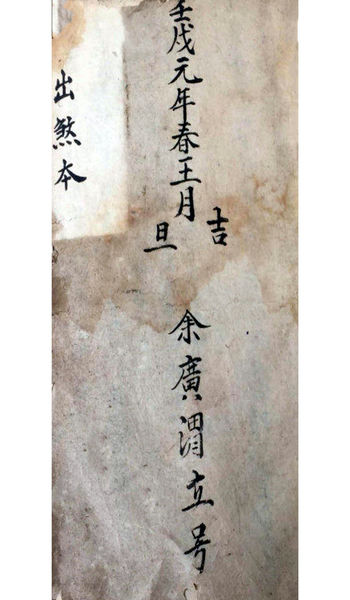 壬戌元年春王月
吉旦
余廣渭立号
出煞本